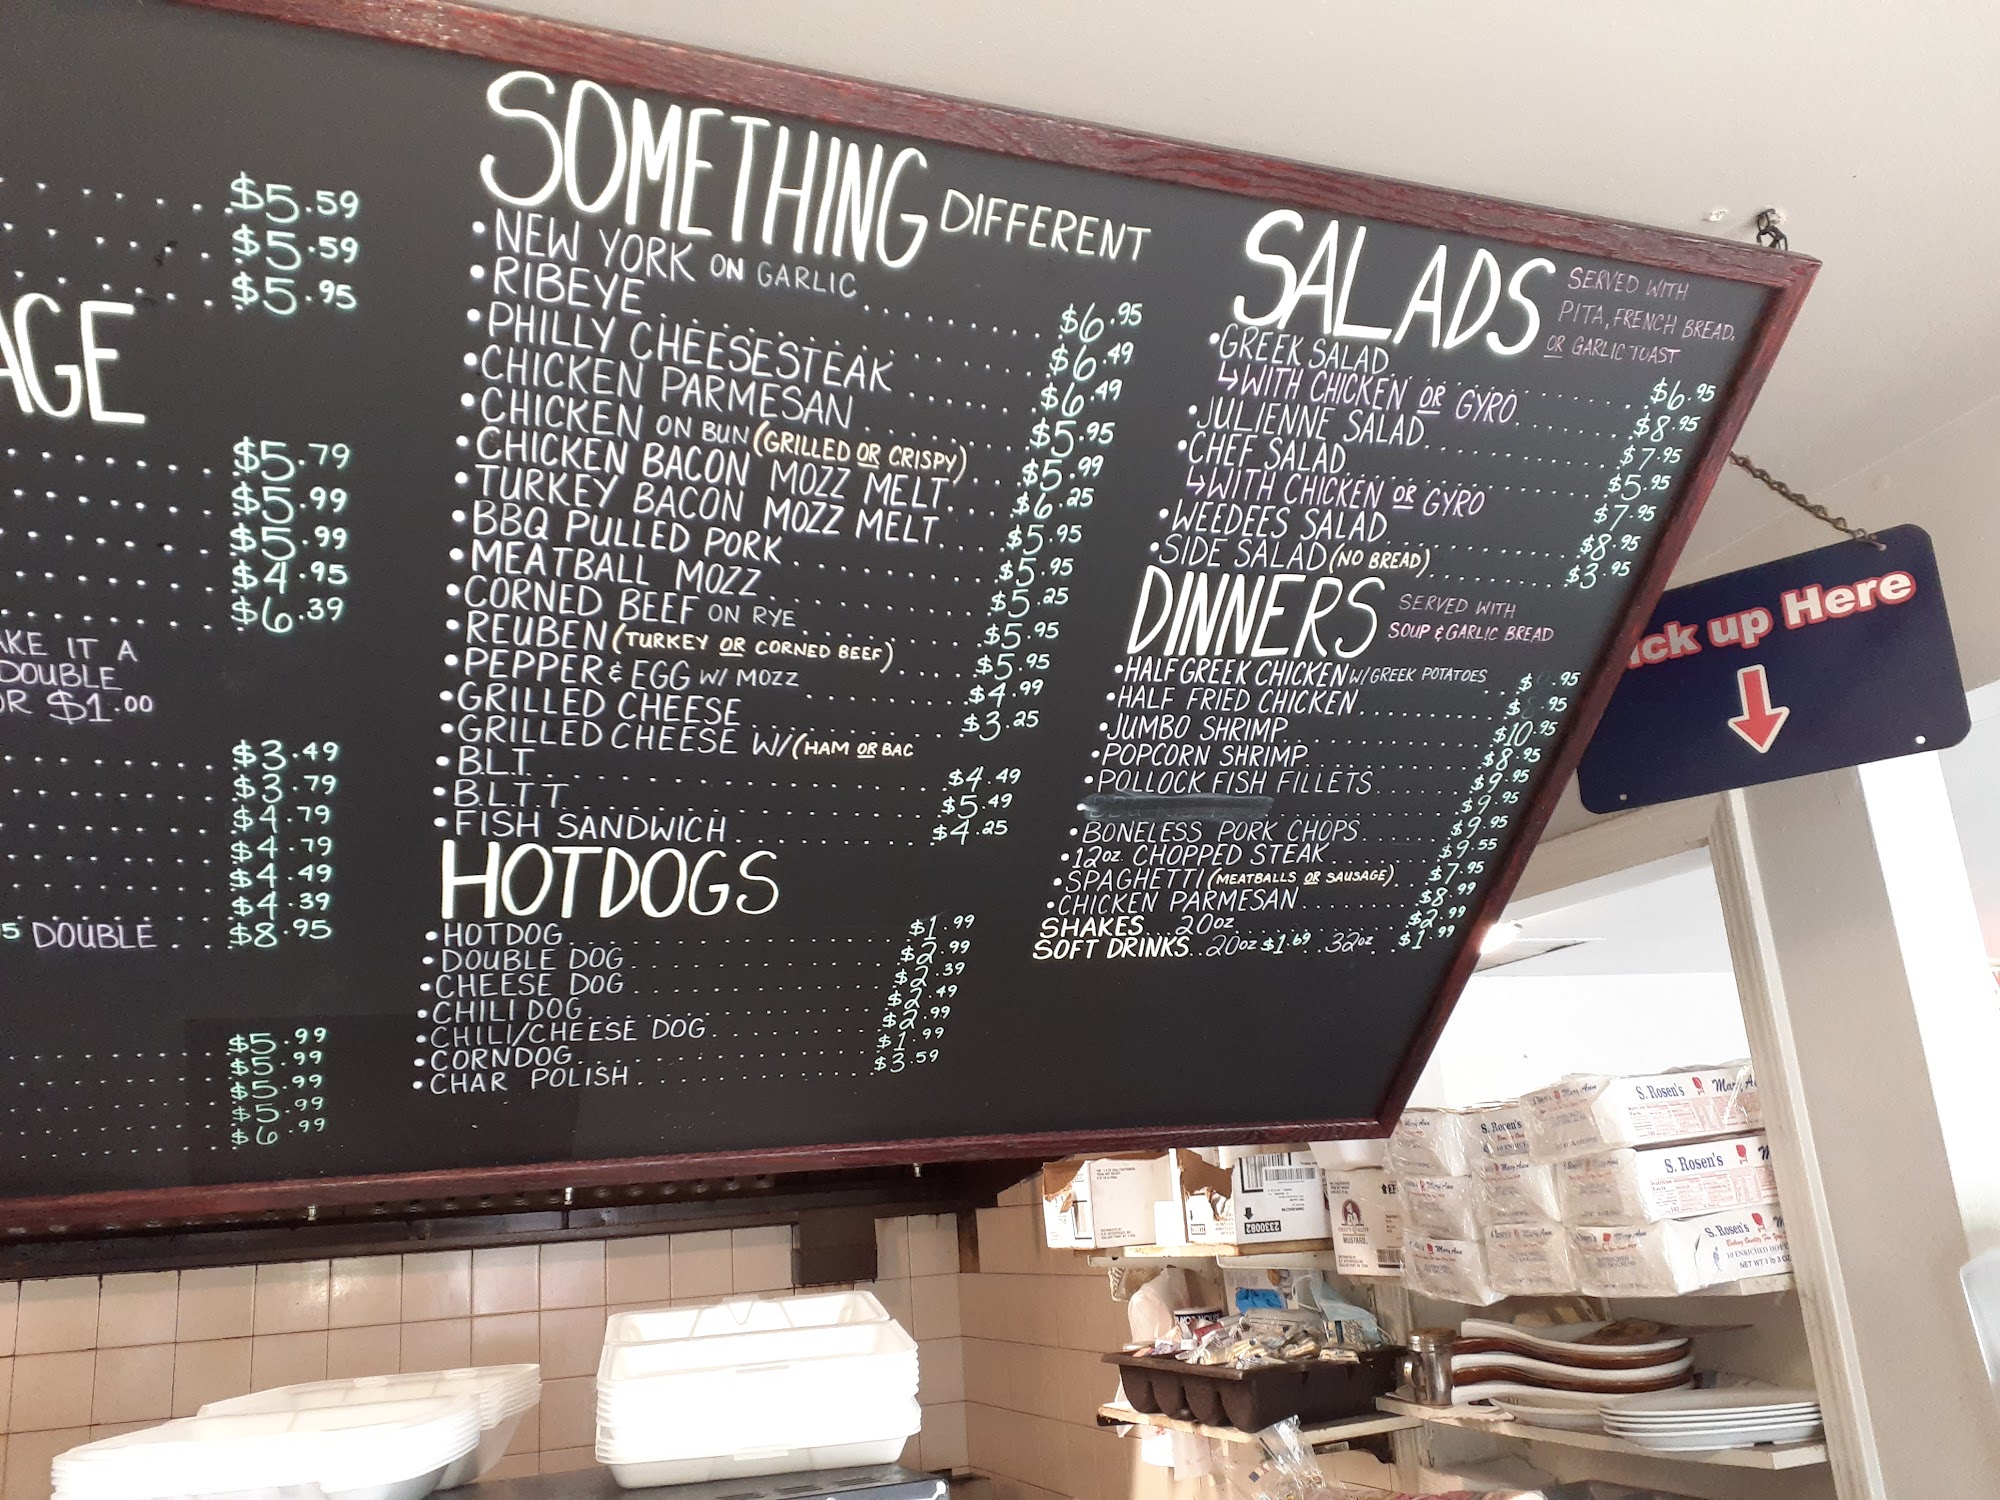 $5.59
$5.59
$5.95
AGE
$5.79
$5.99
$5.99
$4.95
$6.39
AKE IT A
DOUBLE
OR $1.00
$3.49
$3.79
$4.79
$4.79
$4.49
$4.39
5 DOUBLE . . $8.95
$5.99
$5.99
$5.99
$5.99
$6.99
SOMETHING DIFFERENT
• NEW YORK ON GARLIC $6.95
• RIBEYE $6.49
• PHILLY CHEESESTEAK $6.49
• CHICKEN PARMESAN $5.95
• CHICKEN ON BUN (GRILLED OR CRISPY) $5.99
• CHICKEN BACON MOZZ MELT $6.25
• TURKEY BACON MOZZ MELT $5.95
• BBQ PULLED PORK $5.95
• MEATBALL MOZZ $5.25
• CORNED BEEF ON RYE $5.95
• REUBEN (TURKEY OR CORNED BEEF) $5.95
• PEPPER & EGG W/ MOZZ $4.99
• GRILLED CHEESE $3.25
• GRILLED CHEESE W/(HAM OR BAC
• B.L.T. $4.49
• B.L.T.T. $5.49
• FISH SANDWICH $4.25
HOTDOGS
• HOTDOG $1.99
• DOUBLE DOG $2.99
• CHEESE DOG $2.39
• CHILI DOG $2.49
• CHILI/CHEESE DOG $2.99
• CORNDOG $1.99
• CHAR POLISH $3.59
SALADS SERVED WITH
PITA, FRENCH BREAD,
OR GARLIC TOAST
• GREEK SALAD $6.95
↳ WITH CHICKEN OR GYRO $8.95
• JULIENNE SALAD $7.95
• CHEF SALAD $5.95
↳ WITH CHICKEN OR GYRO $7.95
• WEEDEES SALAD $8.95
• SIDE SALAD (NO BREAD) $3.95
DINNERS SERVED WITH
SOUP & GARLIC BREAD
• HALF GREEK CHICKEN W/ GREEK POTATOES $ .95
• HALF FRIED CHICKEN $ .95
• JUMBO SHRIMP $10.95
• POPCORN SHRIMP $8.95
• POLLOCK FISH FILLETS $9.95
• $9.95
• BONELESS PORK CHOPS $9.95
• 12oz. CHOPPED STEAK $9.55
• SPAGHETTI (MEATBALLS OR SAUSAGE) $7.95
• CHICKEN PARMESAN $8.99
SHAKES... 20oz $2.99
SOFT DRINKS.. 20oz $1.69 .. 32oz . $1.99
ick up Here
S. Rosen's Mary A
S. Rosen's
S. Rosen's
S. Rosen's
Mary Ann
NET WT 1 lb 3 OZ
2330082
MUSTARD